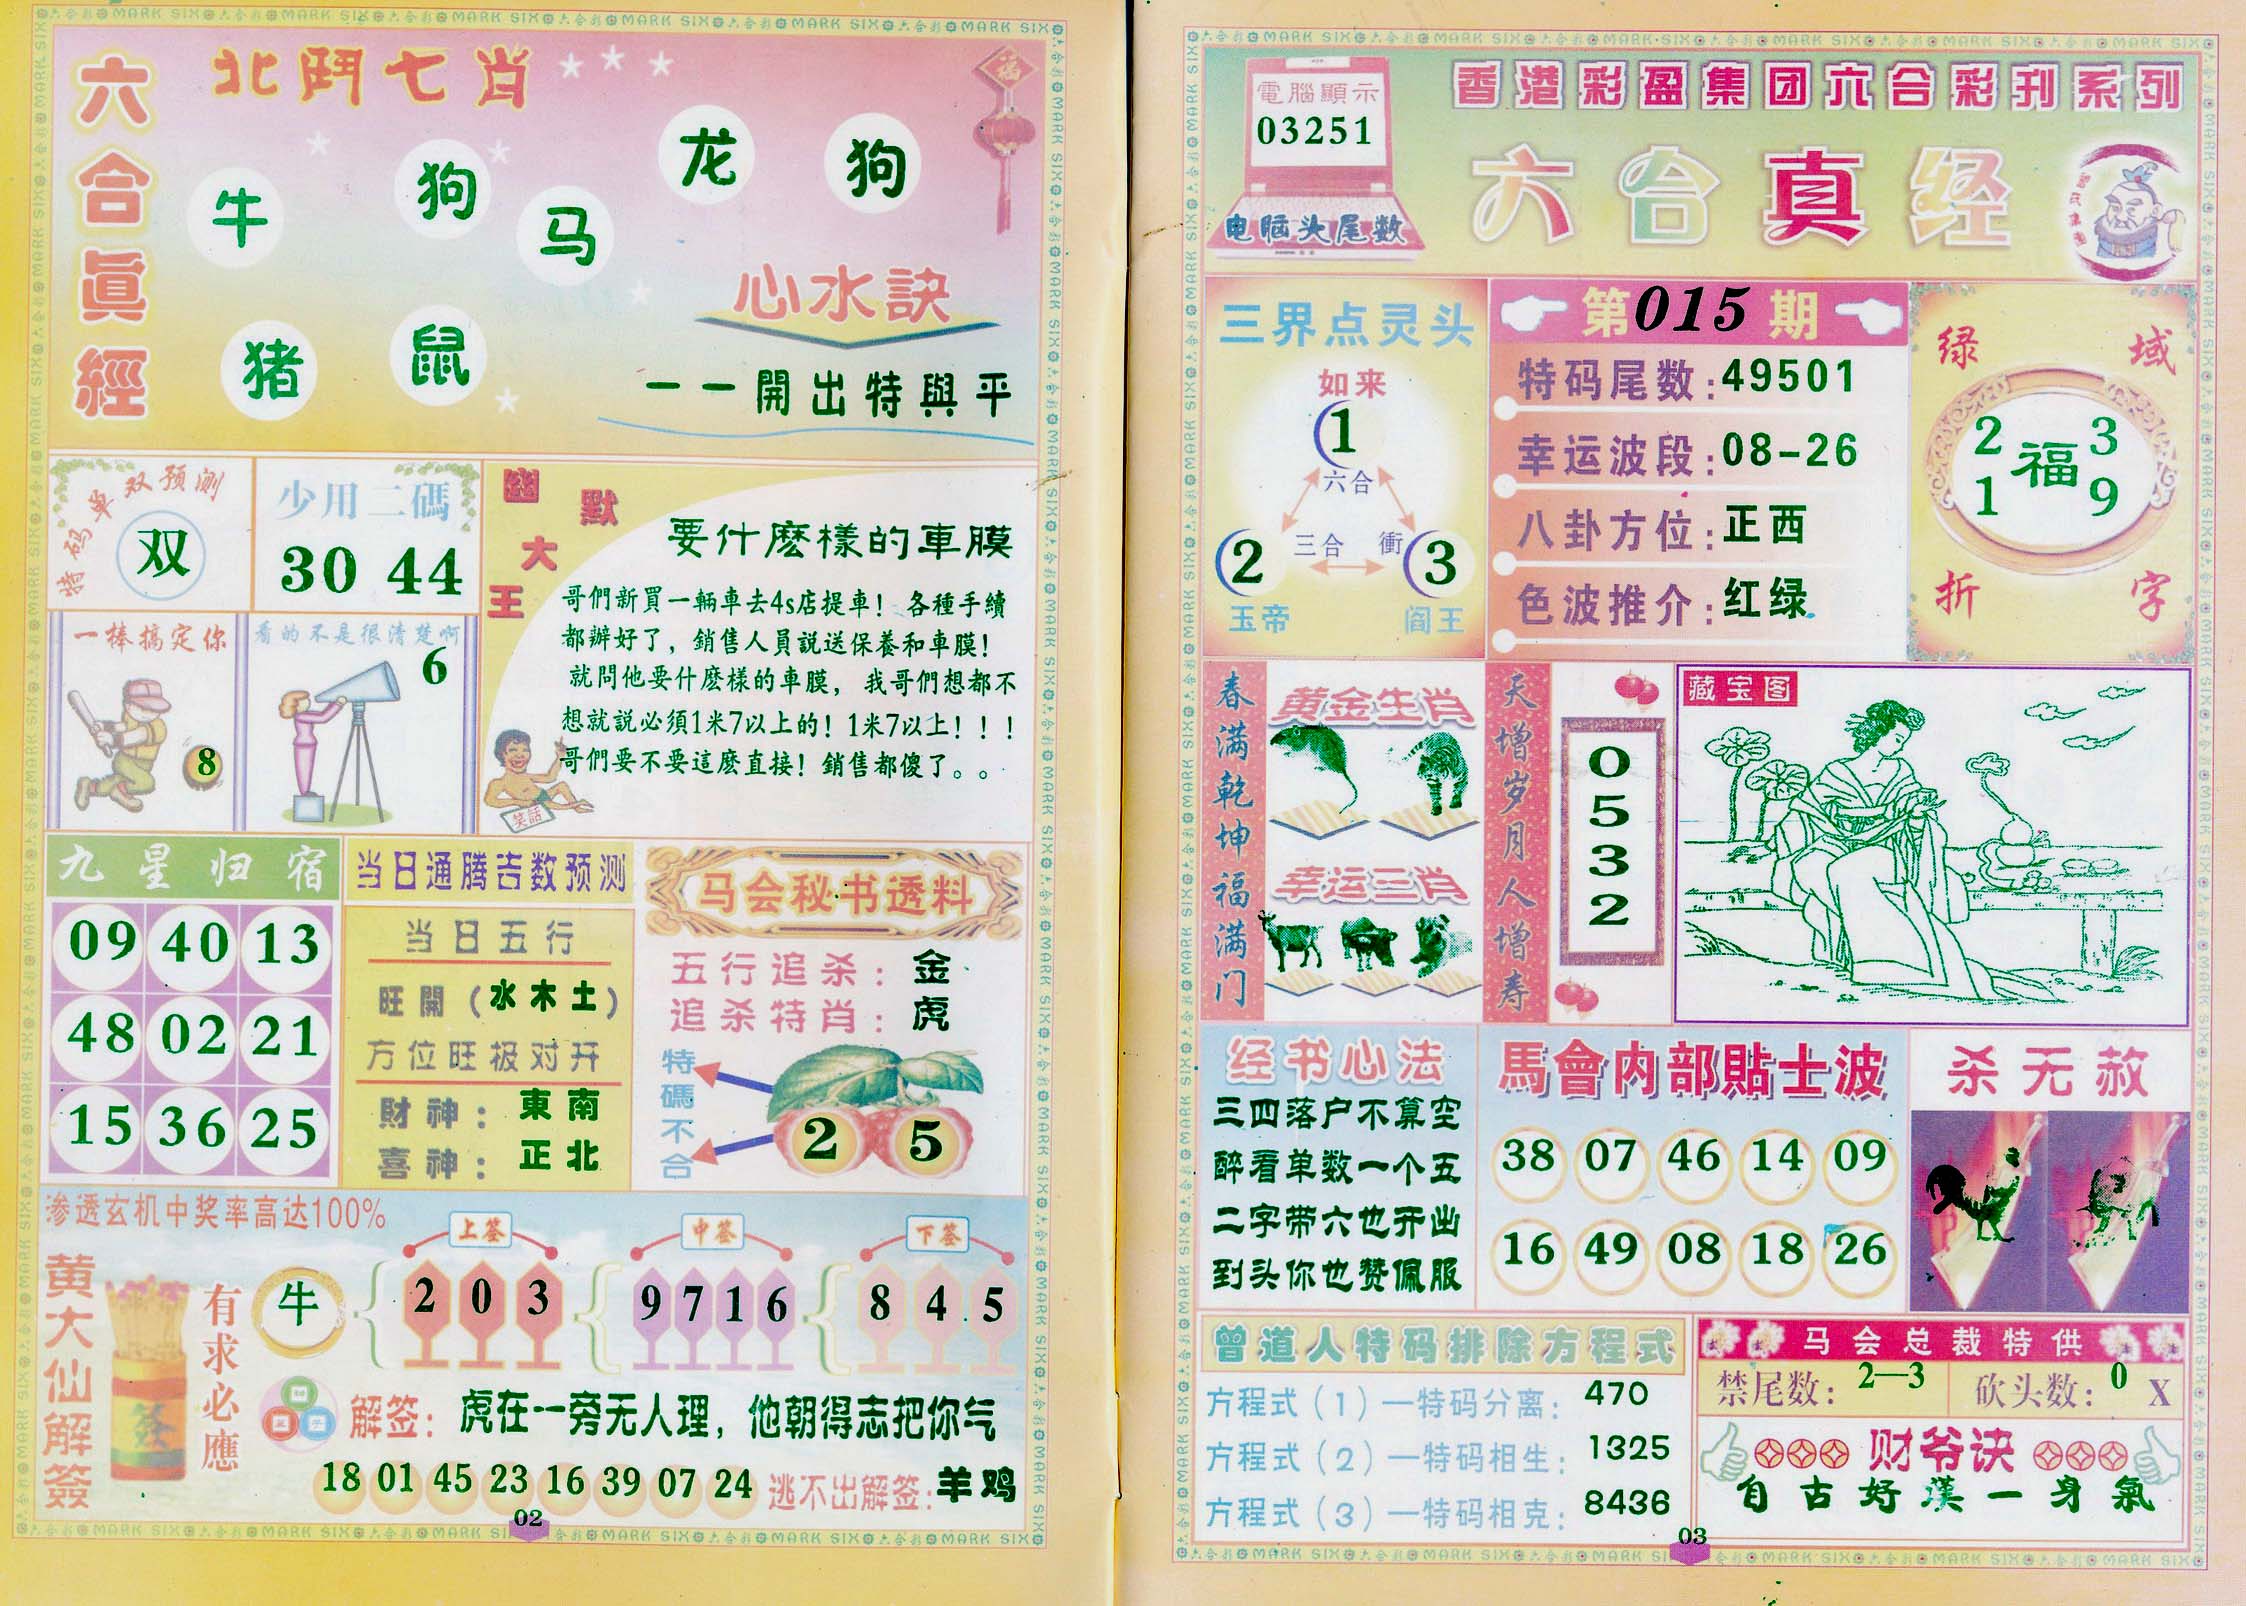 六合眞經
北鬥七肖
福
牛
狗
马
龙
狗
猪
鼠
心水訣
一一開出特與平
特码单双预测
双
少用二碼
30 44
一棒搞定你
8
看的不是很清楚啊
6
幽默大王
要什麽樣的車膜
哥們新買一輛車去4s店提車！各種手續
都辦好了，銷售人員説送保養和車膜！
就問他要什麽樣的車膜，我哥們想都不
想就説必須1米7以上的！1米7以上！！！
哥們要不要這麽直接！銷售都傻了。。
笑話
九星归宿
09 40 13
48 02 21
15 36 25
当日通腾吉数预测
当日五行
旺開（水木土）
方位旺极对开
財神：東南
喜神：正北
马会秘书透料
五行追杀：金
追杀特肖：虎
特碼不合
2 5
渗透玄机中奖率高达100%
黄大仙解簽
簽
有求必應
牛
上签
2 0 3
中签
9 7 1 6
下签
8 4 5
解签：虎在一旁无人理，他朝得志把你气
18 01 45 23 16 39 07 24 逃不出解签：羊鸡
02
電腦顯示
03251
电脑头尾数
香港彩盈集团六合彩刊系列
六合真经
三界点灵头
如来
1
六合
2
三合
衝
3
玉帝
阎王
第015期
特码尾数：49501
幸运波段：08-26
八卦方位：正西
色波推介：红绿
绿域
2 3
福
1 9
折字
春满乾坤福满门
黄金生肖
幸运三肖
天增岁月人增寿
0532
藏宝图
经书心法
三四落户不算空
醉看单数一个五
二字带六也开出
到头你也赞佩服
馬會内部貼士波
38 07 46 14 09
16 49 08 18 26
杀无赦
曾道人特码排除方程式
方程式（1）—特码分离：470
方程式（2）—特码相生：1325
方程式（3）—特码相克：8436
马会总裁特供
禁尾数：2—3
砍头数：0 X
财爷诀
自古好漢一身氣
03
MARK SIX 六合彩